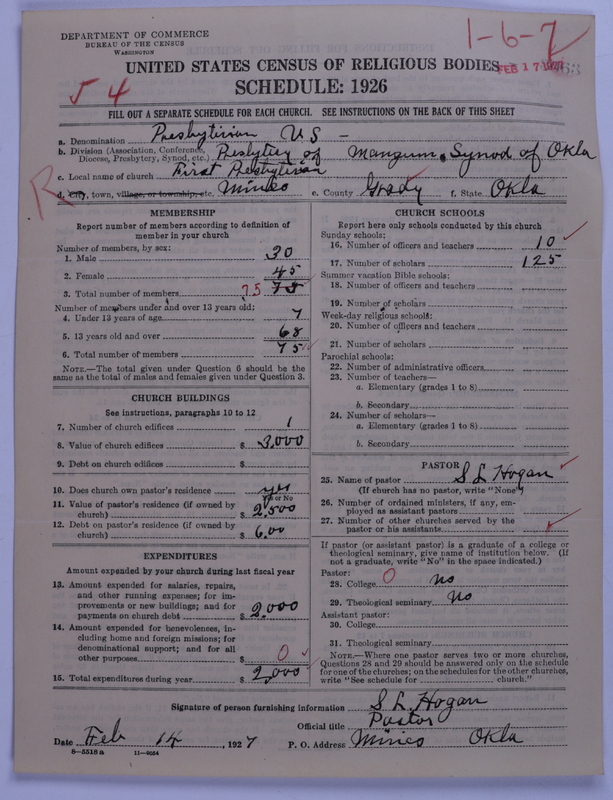 DEPARTMENT OF COMMERCE
BUREAU OF THE CENSUS
WASHINGTON
1-6-2
UNITED STATES CENSUS OF RELIGIOUS BODIES
FEB 17
SCHEDULE: 1926
54
FILL OUT A SEPARATE SCHEDULE FOR EACH CHURCH. SEE INSTRUCTIONS ON THE BACK OF THIS SHEET
a. Denomination Presbyterian U S -
b. Division (Association, Conference, Diocese, Presbytery, Synod, etc.) Presbytery of Mangum, Synod of Okla
c. Local name of church First Presbyterian
R
d. City, town, village, or township, etc. Minco e. County Grady f. State Okla
MEMBERSHIP
Report number of members according to definition of
member in your church
Number of members, by sex:
1. Male 30
2. Female 45
3. Total number of members 75 75
Number of members under and over 13 years old:
4. Under 13 years of age 7
5. 13 years old and over 68
6. Total number of members 75
NOTE.—The total given under Question 6 should be
same as the total of males and females given under Question 3.
CHURCH BUILDINGS
See instructions, paragraphs 10 to 12
7. Number of church edifices 1
8. Value of church edifices $ 3,000
9. Debt on church edifices $
10. Does church own pastor's residence yes
Yes or No
11. Value of pastor's residence (if owned by
church) $ 2,500
12. Debt on pastor's residence (if owned by
church) $ 6,00
EXPENDITURES
Amount expended by your church during last fiscal year
13. Amount expended for salaries, repairs,
and other running expenses; for im-
provements or new buildings; and for
payments on church debt $ 2,000
14. Amount expended for benevolences, in-
cluding home and foreign missions; for
denominational support; and for all
other purposes $ 0
15. Total expenditures during year $ 2,000
CHURCH SCHOOLS
Report here only schools conducted by this church
Sunday schools:
16. Number of officers and teachers 10
17. Number of scholars 125
Summer vacation Bible schools:
18. Number of officers and teachers
19. Number of scholars
Week-day religious schools:
20. Number of officers and teachers
21. Number of scholars
Parochial schools:
22. Number of administrative officers
23. Number of teachers—
a. Elementary (grades 1 to 8)
b. Secondary
24. Number of scholars—
a. Elementary (grades 1 to 8)
b. Secondary
PASTOR
25. Name of pastor S L Hogan
(If church has no pastor, write "None")
26. Number of ordained ministers, if any, em-
ployed as assistant pastors
27. Number of other churches served by the
pastor or his assistants
If pastor (or assistant pastor) is a graduate of a college or
theological seminary, give name of institution below. (If
not a graduate, write "No" in the space indicated.)
Pastor:
28. College 0 no
29. Theological seminary No
Assistant pastor:
30. College
31. Theological seminary
NOTE.—Where one pastor serves two or more churches,
Questions 28 and 29 should be answered only on the schedule
for one of the churches; on the schedules for the other churches,
write "See schedule for church."
Signature of person furnishing information S L. Hogan
Official title Pastor
Date Feb 14, 1927 P. O. Address Minco Okla
8-5518 a 11-9054